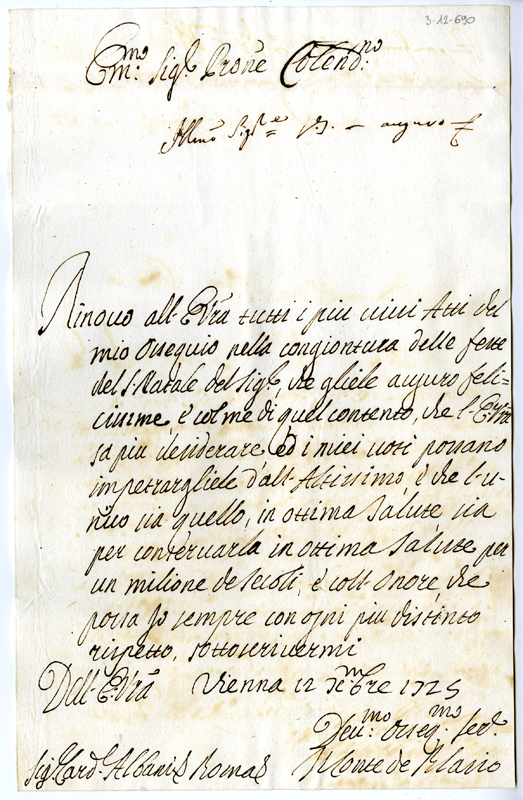 3-12-690
Em:mo Sig.r Prone Colend:mo
Rinovo all E.Vra tutti i piu vivi Atti del
mio Ossequio nella congiontura delle feste
del S. Natale del Sig.re, che gliele auguro feli=
cissime, è colme di quel contento, che l'E.Vra
sa piu desiderare, ed i miei voti possano
impetrargliele dall'Altissimo, è che l'u-
nico sia quello, in ottima Salute, sia
per conservarla in ottima Salute per
un milione de Secoli, è coll Onore, che
possa Jo sempre con ogni piu distinto
rispetto, sottoscrivermi
Dell E.Vra Vienna 12 Xmbre 1725
Deu:mo Osseq:mo Ser.
Sig. Card. Albani Roma